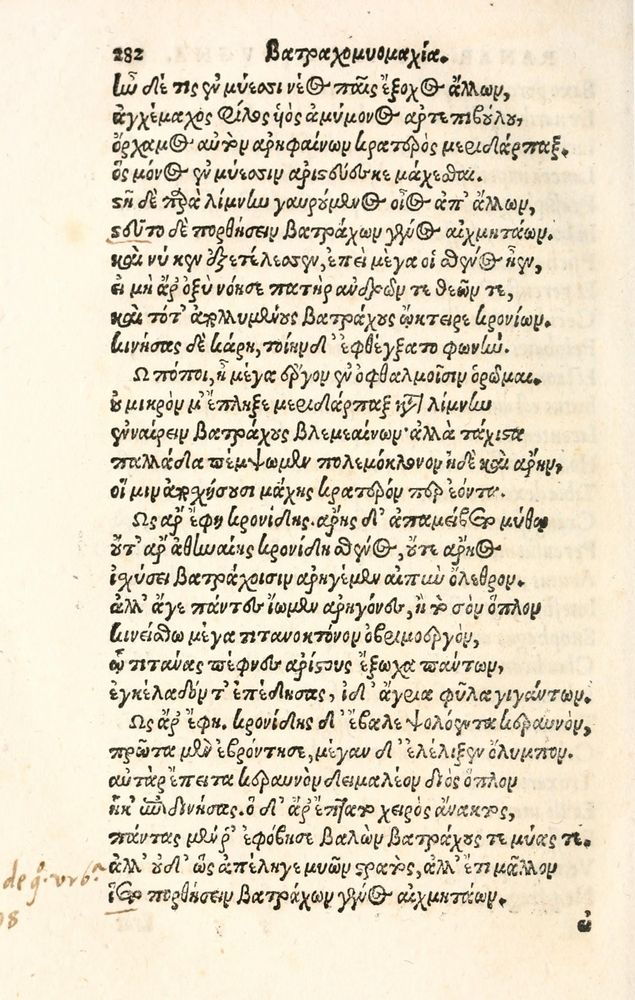 282 Βατραχομυομαχία.
ἦν δέ τις ἐν μύεσσι νέος παῖς ἔξοχος ἄλλων,
ἀγχέμαχος φίλος ὑὸς ἀμύμονος ἀρτεπιβούλου,
ὄρχαμος αὐτὸν ἄρη φαίνων κρατερὸς μεριδάρπαξ.
ὃς μόνος ἐν μύεσσιν ἀρίστευσκε μάχεσθαι.
στῆ δὲ παρὰ λίμνην γαυρούμενος οἶος ἀπ' ἄλλων,
στεῦτο δὲ πορθήσειν βατράχων γένος αἰχμητάων.
καὶ νύ κεν ἐξετέλεσσεν, ἐπεὶ μέγα οἱ σθένος ἦεν,
εἰ μὴ ἄρ' ὀξὺ νόησε πατὴρ ἀνδρῶν τε θεῶν τε,
καὶ τότ' ἀπολλυμένους βατράχους ᾤκτειρε κρονίων.
κινήσας δὲ κάρη, τοίην δ' ἐφθέγξατο φωνήν.
Ὢ πόποι, ἦ μέγα ἔργον ἐν ὀφθαλμοῖσιν ὁρῶμαι.
οὐ μικρὸν μ' ἔπληξε μεριδάρπαξ κατὰ λίμνην
ἐναίρειν βατράχους βλεμεαίνων· ἀλλὰ τάχιστα
παλλάδα πέμψωμεν πολεμόκλονον ἠδὲ καὶ ἄρην,
οἵ μιν ἀποσχήσουσι μάχης κρατερόν περ ἐόντα.
Ὣς ἄρ' ἔφη κρονίδης. ἄρης δ' ἀπαμείβετο μύθῳ
οὔτ' ἄρ' ἀθηναίης κρονίδη σθένος, οὔτε ἄρηος
ἰσχύσει βατράχοισιν ἀρηγέμεν αἰπὺν ὄλεθρον.
ἀλλ' ἄγε πάντες ἴωμεν ἀρηγόνες, ἢ τὸ σὸν ὅπλον
κινείσθω μέγα τιτανοκτόνον ὀβριμοεργόν,
ᾧ τιτᾶνας πέφνες ἀρίστους ἔξοχα πάντων,
ἐγκέλαδόν τ' ἐπέδησας, ἰδ' ἄγρια φῦλα γιγάντων.
Ὣς ἄρ' ἔφη. κρονίδης δ' ἔβαλε ψολόεντα κεραυνόν,
πρῶτα μὲν ἐβρόντησε, μέγαν δ' ἐλέλιξεν ὄλυμπον.
αὐτὰρ ἔπειτα κεραυνὸν δειμαλέον διὸς ὅπλον
ἧκ' ἐπιδινήσας. ὁ δ' ἄρ' ἔπτατο χειρὸς ἄνακτος,
πάντας μέν ῥ' ἐφόβησε βαλὼν βατράχους τε μύας τε.
ἀλλ' οὐδ' ὣς ἀπέληγε μυῶν στρατὸς, ἀλλ' ἔτι μᾶλλον
ἵετο πορθήσειν βατράχων γένος αἰχμητάων.